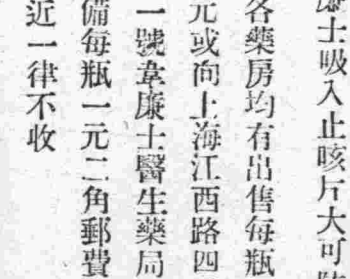 廉士吸入止咳片大可
各藥房均有出售每瓶
元或向上海江西路四
一號韋廉士醫生藥局
備每瓶一元二角郵費
近一律不收